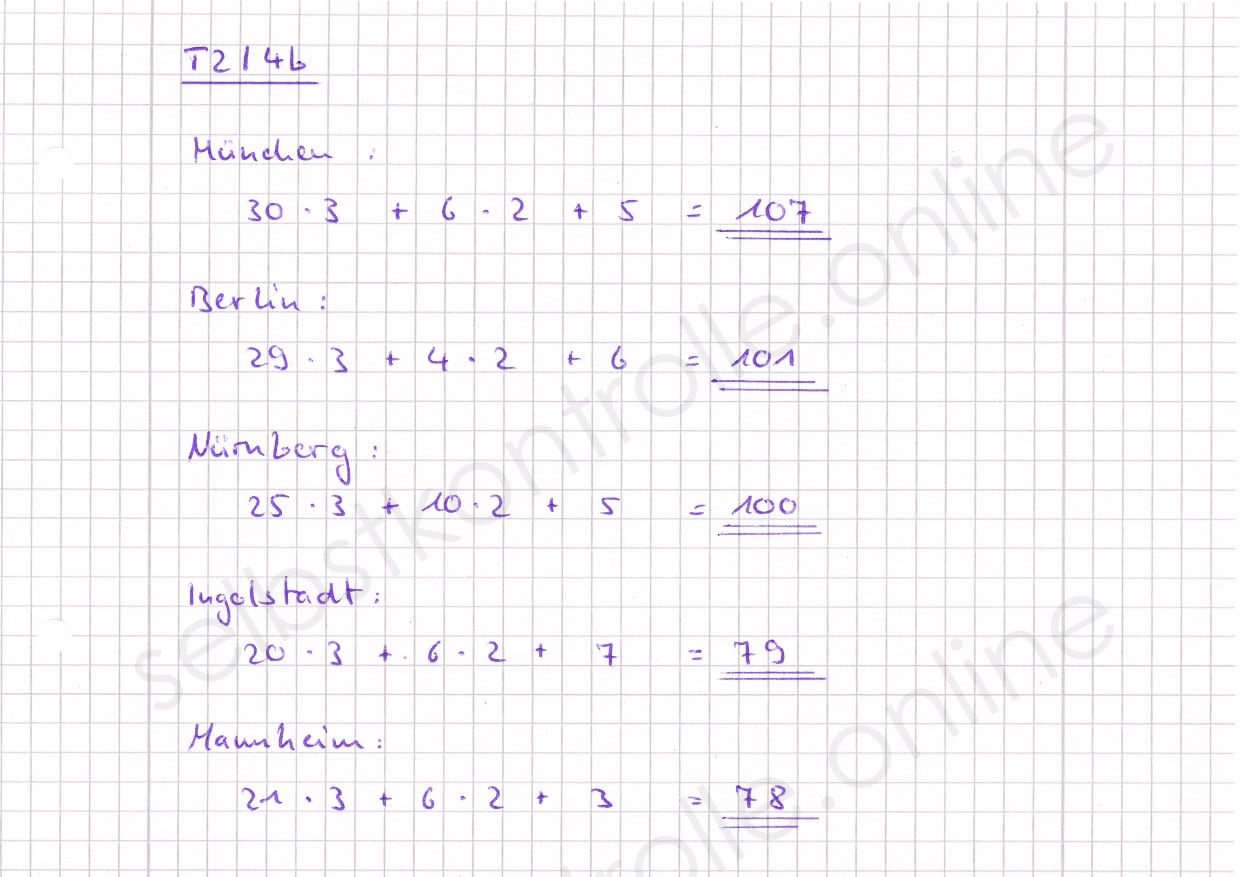 T2/4b
München:
30 · 3 + 6 · 2 + 5 = 107
Berlin:
29 · 3 + 4 · 2 + 6 = 101
Nürnberg:
25 · 3 + 10 · 2 + 5 = 100
Ingolstadt:
20 · 3 + 6 · 2 + 7 = 79
Mannheim:
21 · 3 + 6 · 2 + 3 = 78
selbstkontrolle.online
trolle.online